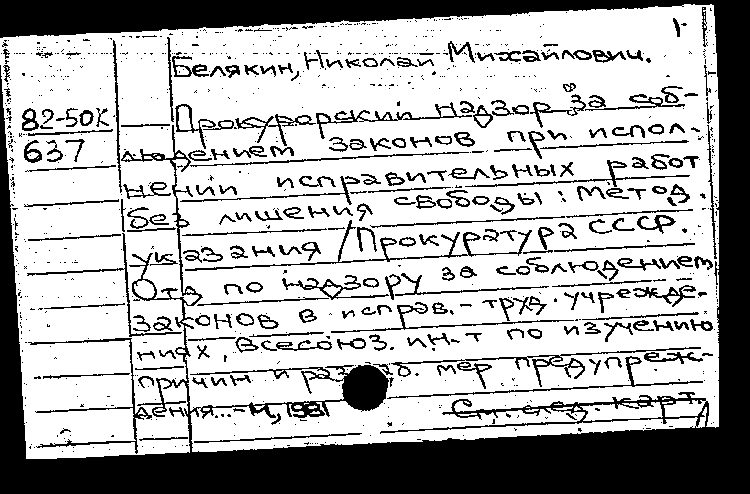 1
Белякин, Николай Михайлович.
82-50К Прокурорский надзор за соб-
637 людением законов при испол-
нении исправительных работ
без лишения свободы: Метод.
указания / Прокуратура СССР.
Отд по надзору за соблюдением
законов в исправ.-труд. учрежде-
ниях, Всесоюз. ин-т по изучению
причин и мер предупреж-
дения...-М, 1981 См. след. карт.